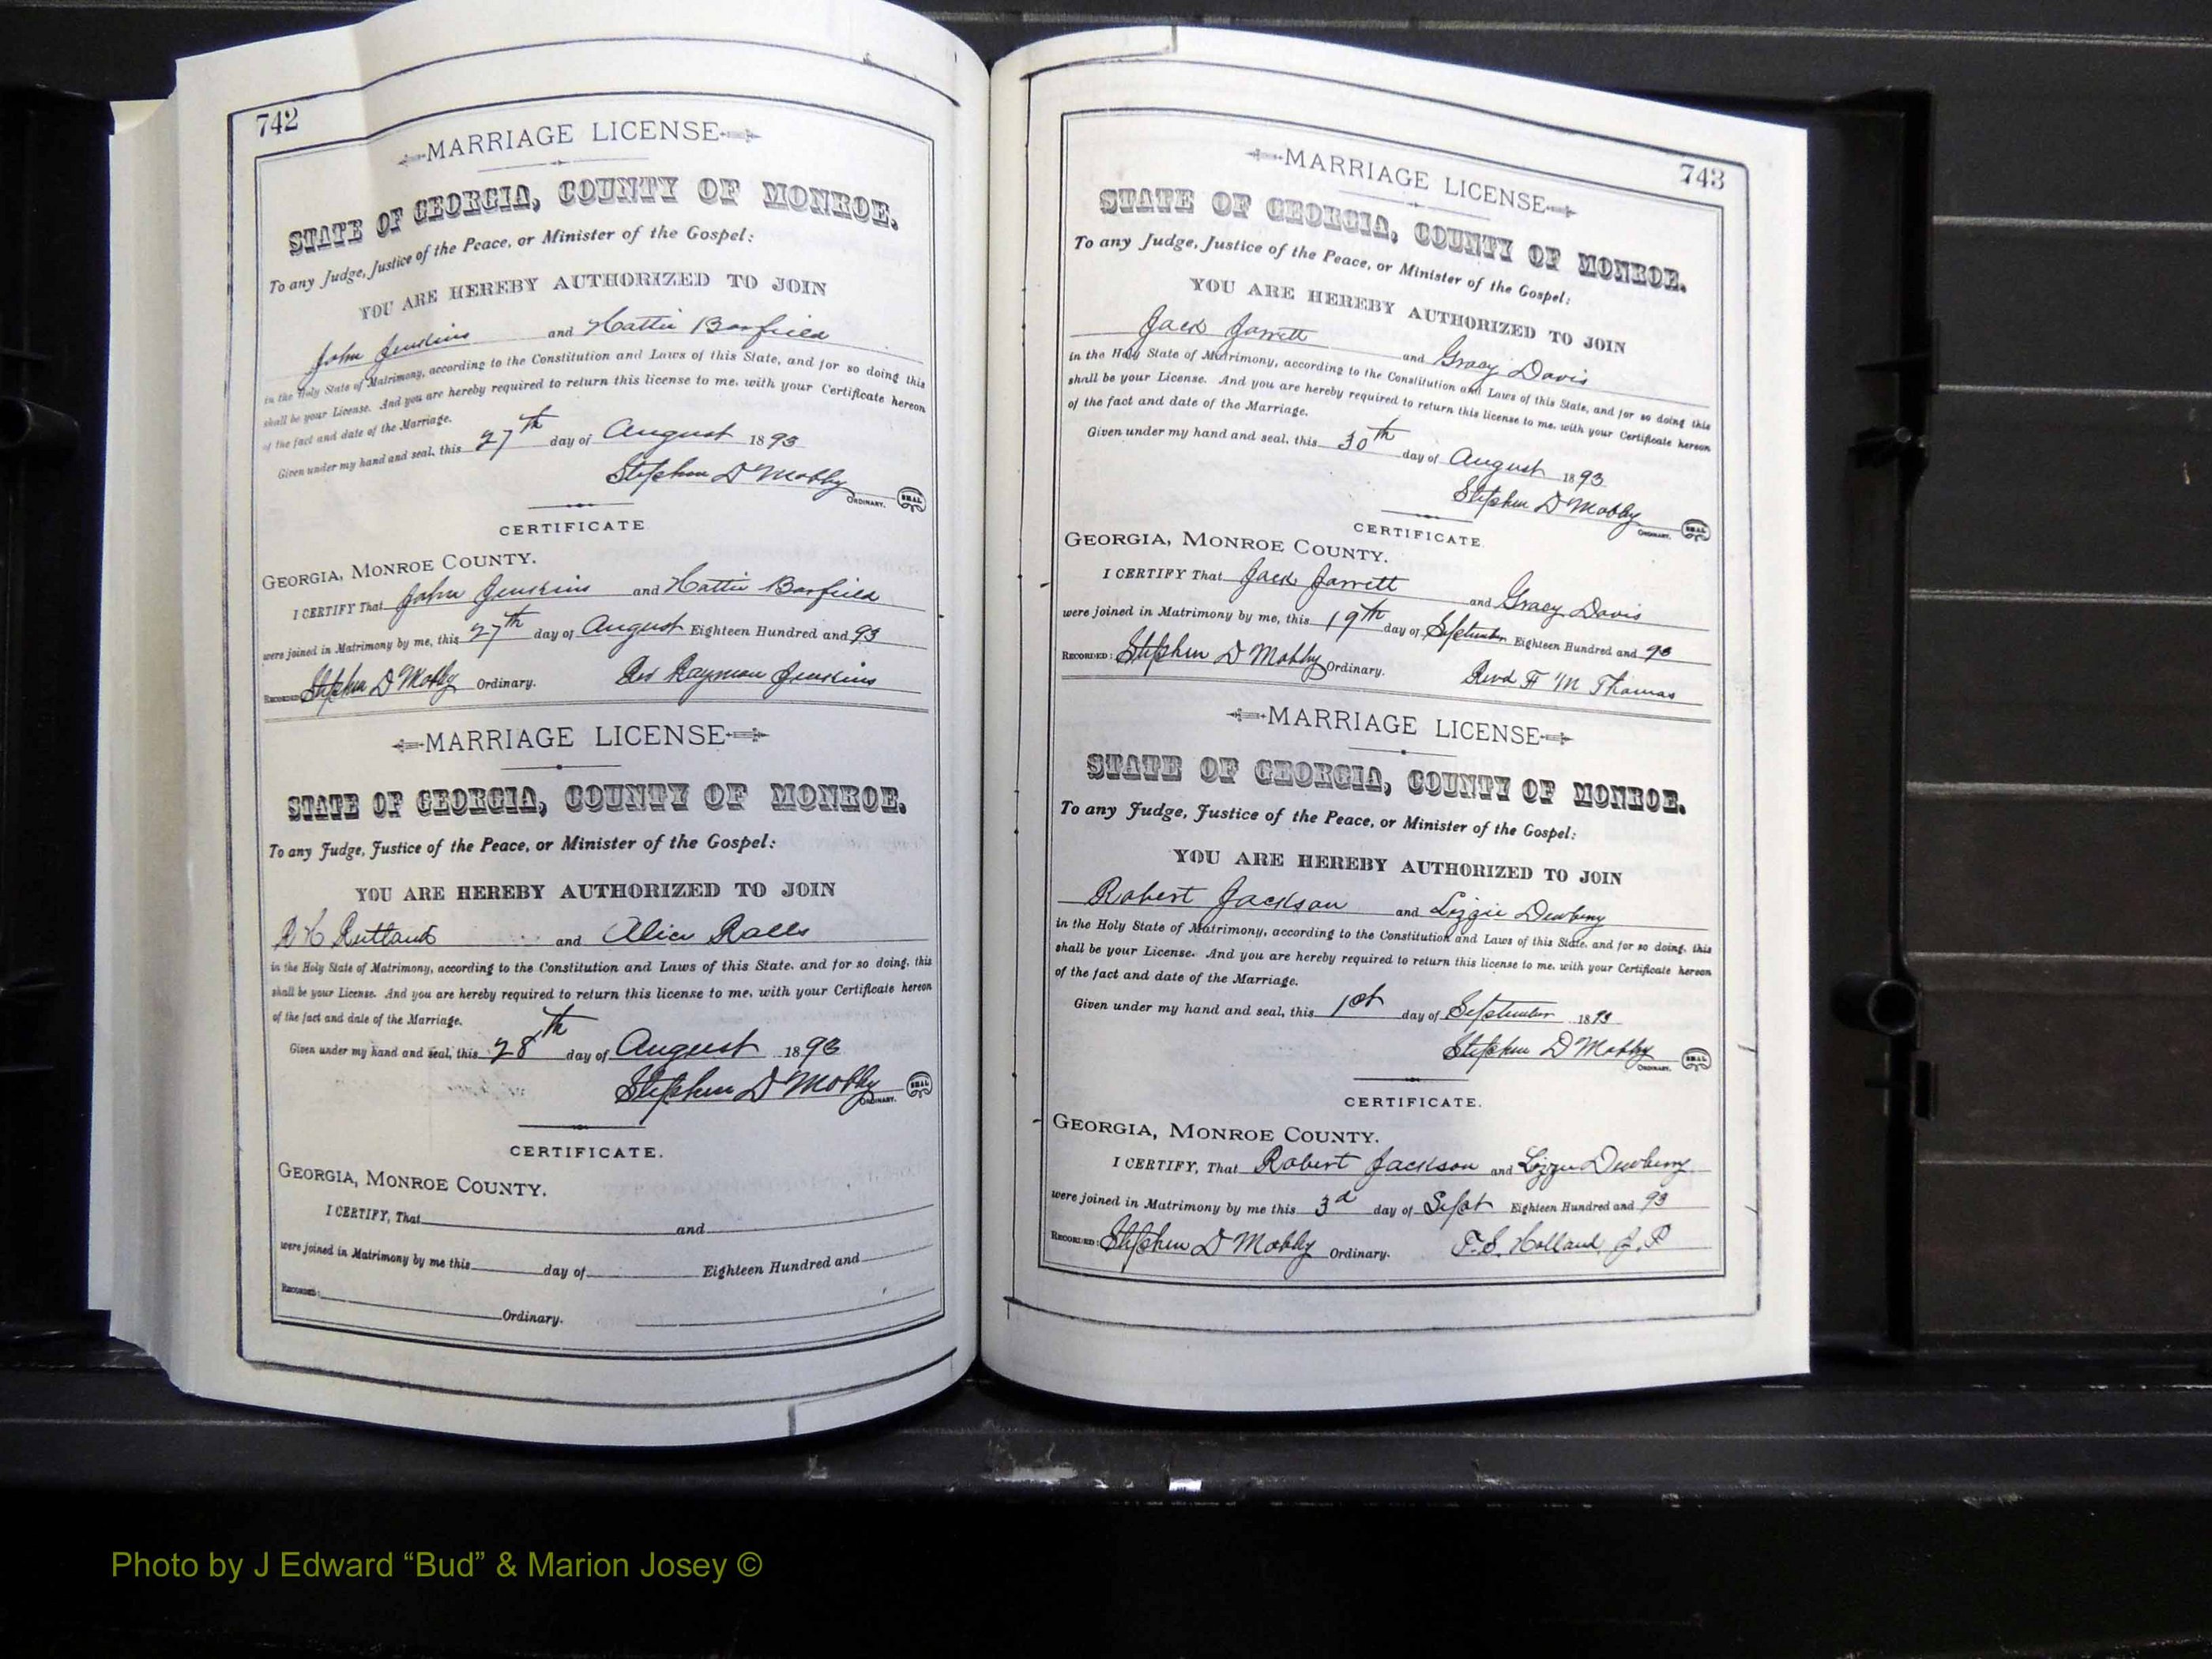 742
MARRIAGE LICENSE
STATE OF GEORGIA, COUNTY OF MONROE.
To any Judge, Justice of the Peace, or Minister of the Gospel:
YOU ARE HEREBY AUTHORIZED TO JOIN
John Jenkins and Hattie Barfield
in the Holy State of Matrimony, according to the Constitution and Laws of this State, and for so doing this
shall be your License. And you are hereby required to return this license to me, with your Certificate hereon
of the fact and date of the Marriage.
Given under my hand and seal, this 27th day of August 1893
Stephen D Mobly
ORDINARY. SEAL
CERTIFICATE
GEORGIA, MONROE COUNTY.
I CERTIFY That John Jenkins and Hattie Barfield
were joined in Matrimony by me, this 27th day of August Eighteen Hundred and 93
RECORDED: Stephen D Mobly Ordinary. Rev Jenkins
MARRIAGE LICENSE
STATE OF GEORGIA, COUNTY OF MONROE.
To any Judge, Justice of the Peace, or Minister of the Gospel:
YOU ARE HEREBY AUTHORIZED TO JOIN
R H Rutland and Alice Ralls
in the Holy State of Matrimony, according to the Constitution and Laws of this State, and for so doing, this
shall be your License. And you are hereby required to return this license to me, with your Certificate hereon
of the fact and date of the Marriage.
Given under my hand and seal, this 28th day of August 1893
Stephen D Mobly
ORDINARY. SEAL
CERTIFICATE.
GEORGIA, MONROE COUNTY.
I CERTIFY, That and
were joined in Matrimony by me this day of Eighteen Hundred and
RECORDED: Ordinary.
743
MARRIAGE LICENSE
STATE OF GEORGIA, COUNTY OF MONROE.
To any Judge, Justice of the Peace, or Minister of the Gospel:
YOU ARE HEREBY AUTHORIZED TO JOIN
Jack Jarrett and Gracy Davis
in the Holy State of Matrimony, according to the Constitution and Laws of this State, and for so doing this
shall be your License. And you are hereby required to return this license to me, with your Certificate hereon
of the fact and date of the Marriage.
Given under my hand and seal, this 30th day of August 1893
Stephen D Mobly
ORDINARY. SEAL
CERTIFICATE.
GEORGIA, MONROE COUNTY.
I CERTIFY That Jack Jarrett and Gracy Davis
were joined in Matrimony by me, this 19th day of September Eighteen Hundred and 93
RECORDED: Stephen D Mobly Ordinary. Revd F M Thomas
MARRIAGE LICENSE
STATE OF GEORGIA, COUNTY OF MONROE.
To any Judge, Justice of the Peace, or Minister of the Gospel:
YOU ARE HEREBY AUTHORIZED TO JOIN
Robert Jackson and Lizzie Dewberry
in the Holy State of Matrimony, according to the Constitution and Laws of this State, and for so doing, this
shall be your License. And you are hereby required to return this license to me, with your Certificate hereon
of the fact and date of the Marriage.
Given under my hand and seal, this 1st day of September 1893
Stephen D Mobly
ORDINARY. SEAL
CERTIFICATE.
GEORGIA, MONROE COUNTY.
I CERTIFY, That Robert Jackson and Lizzie Dewberry
were joined in Matrimony by me this 3d day of Sept Eighteen Hundred and 93
RECORDED: Stephen D Mobly Ordinary. T. S. Holland, J. P
Photo by J Edward “Bud” & Marion Josey ©